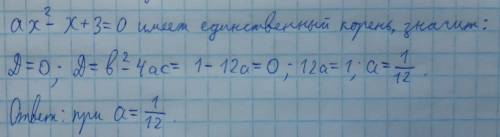 ax² - x + 3 = 0 имеет единственный корень, значит:
D=0; D = b² - 4ac = 1 - 12a = 0; 12a = 1; a = 1/12.
Ответ: при a = 1/12.